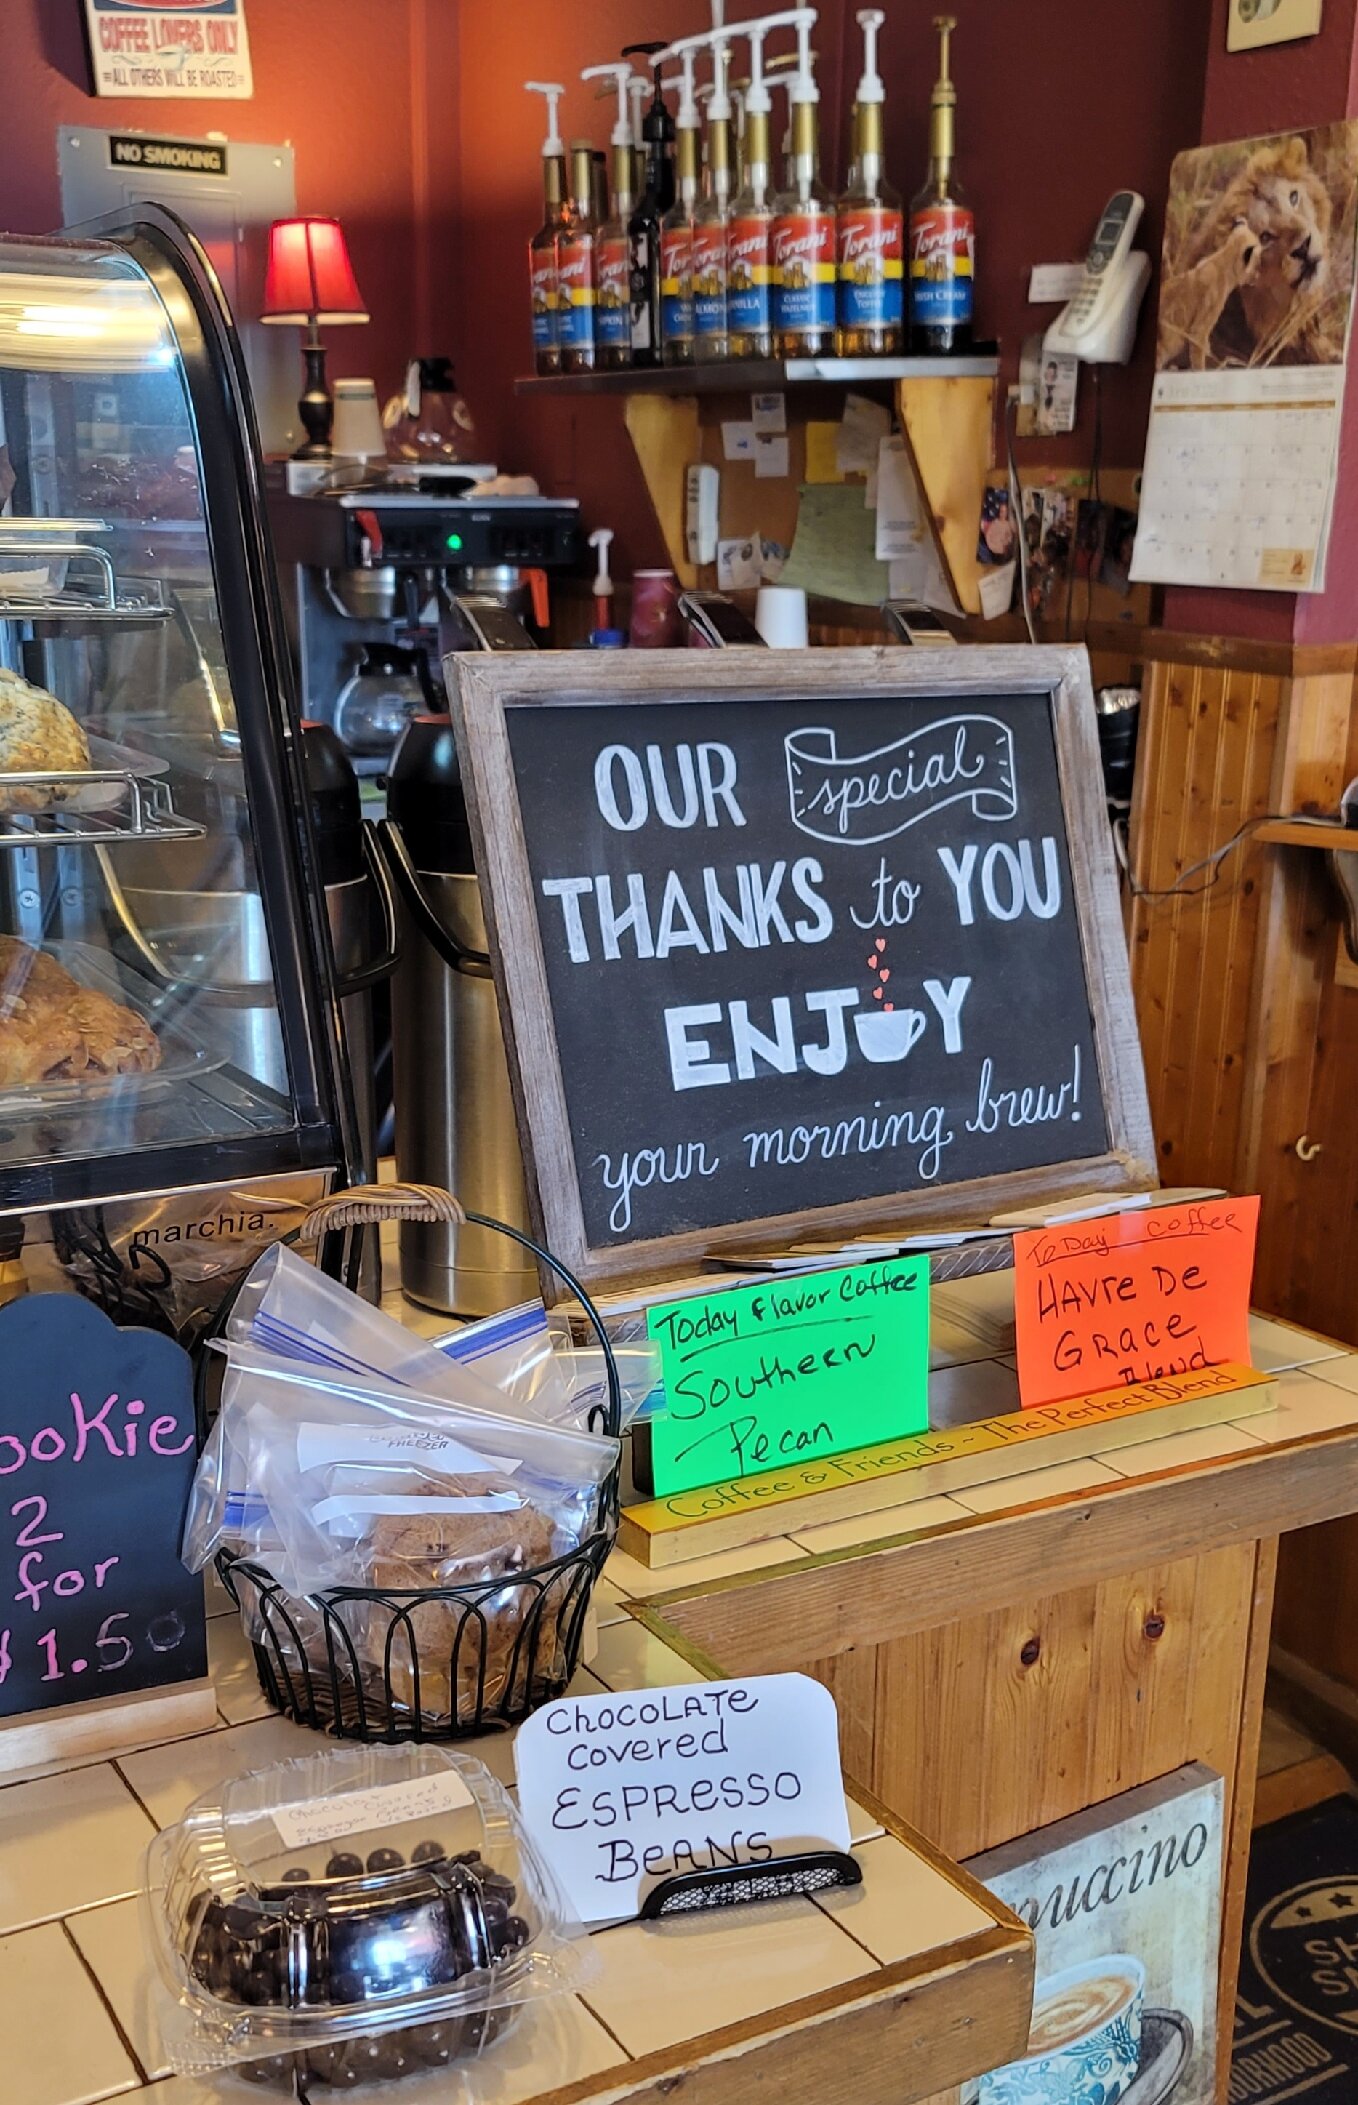 COFFEE LOVERS ONLY
=ALL OTHERS WILL BE ROASTED=
NO SMOKING
Torani
Torani
Torani
Torani
VANILLA
CLASSIC
HAZELNUT
ENGLISH
TOFFEE
IRISH CREAM
OUR special
THANKS to YOU
ENJOY
your morning brew!
marchia.
Today Coffee
HAVre De
Grace
Blend
Today flavor Coffee
Southern
Pecan
Coffee & Friends ~ The Perfect Blend
ookie
2
for
$1.50
FREEZER
Chocolate
covered
Espresso
Beans
Chocolate Covered
uccino
SH
SM